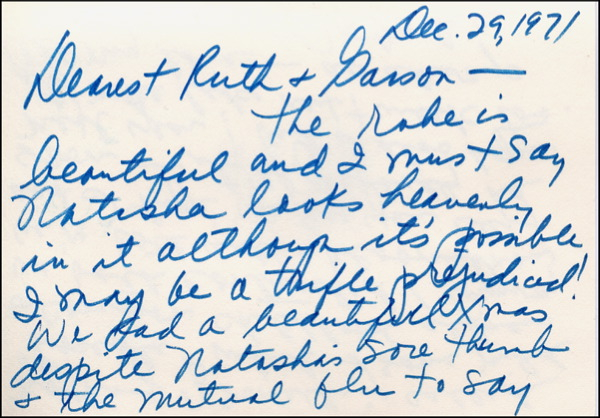 Dec. 29, 1971
Dearest Ruth & Garson —
the robe is
beautiful and I must say
Natasha looks heavenly
in it although it's possible
I may be a trifle prejudiced!
We had a beautiful Xmas
despite Natasha's sore thumb
& the mutual flu to say